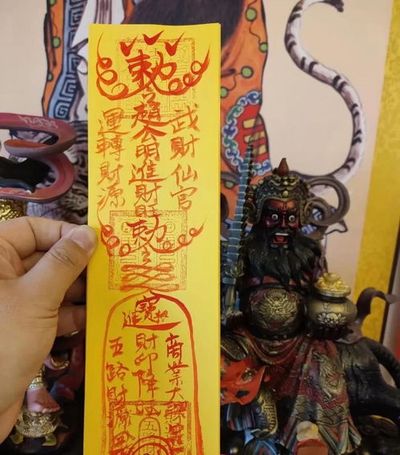 勅
武財仙官
趙公明進財
運轉財源
勅
招寶進
商業大
財印降
五路財源